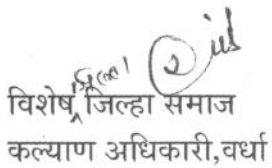 विशेष जिल्हा समाज
कल्याण अधिकारी,वर्धा